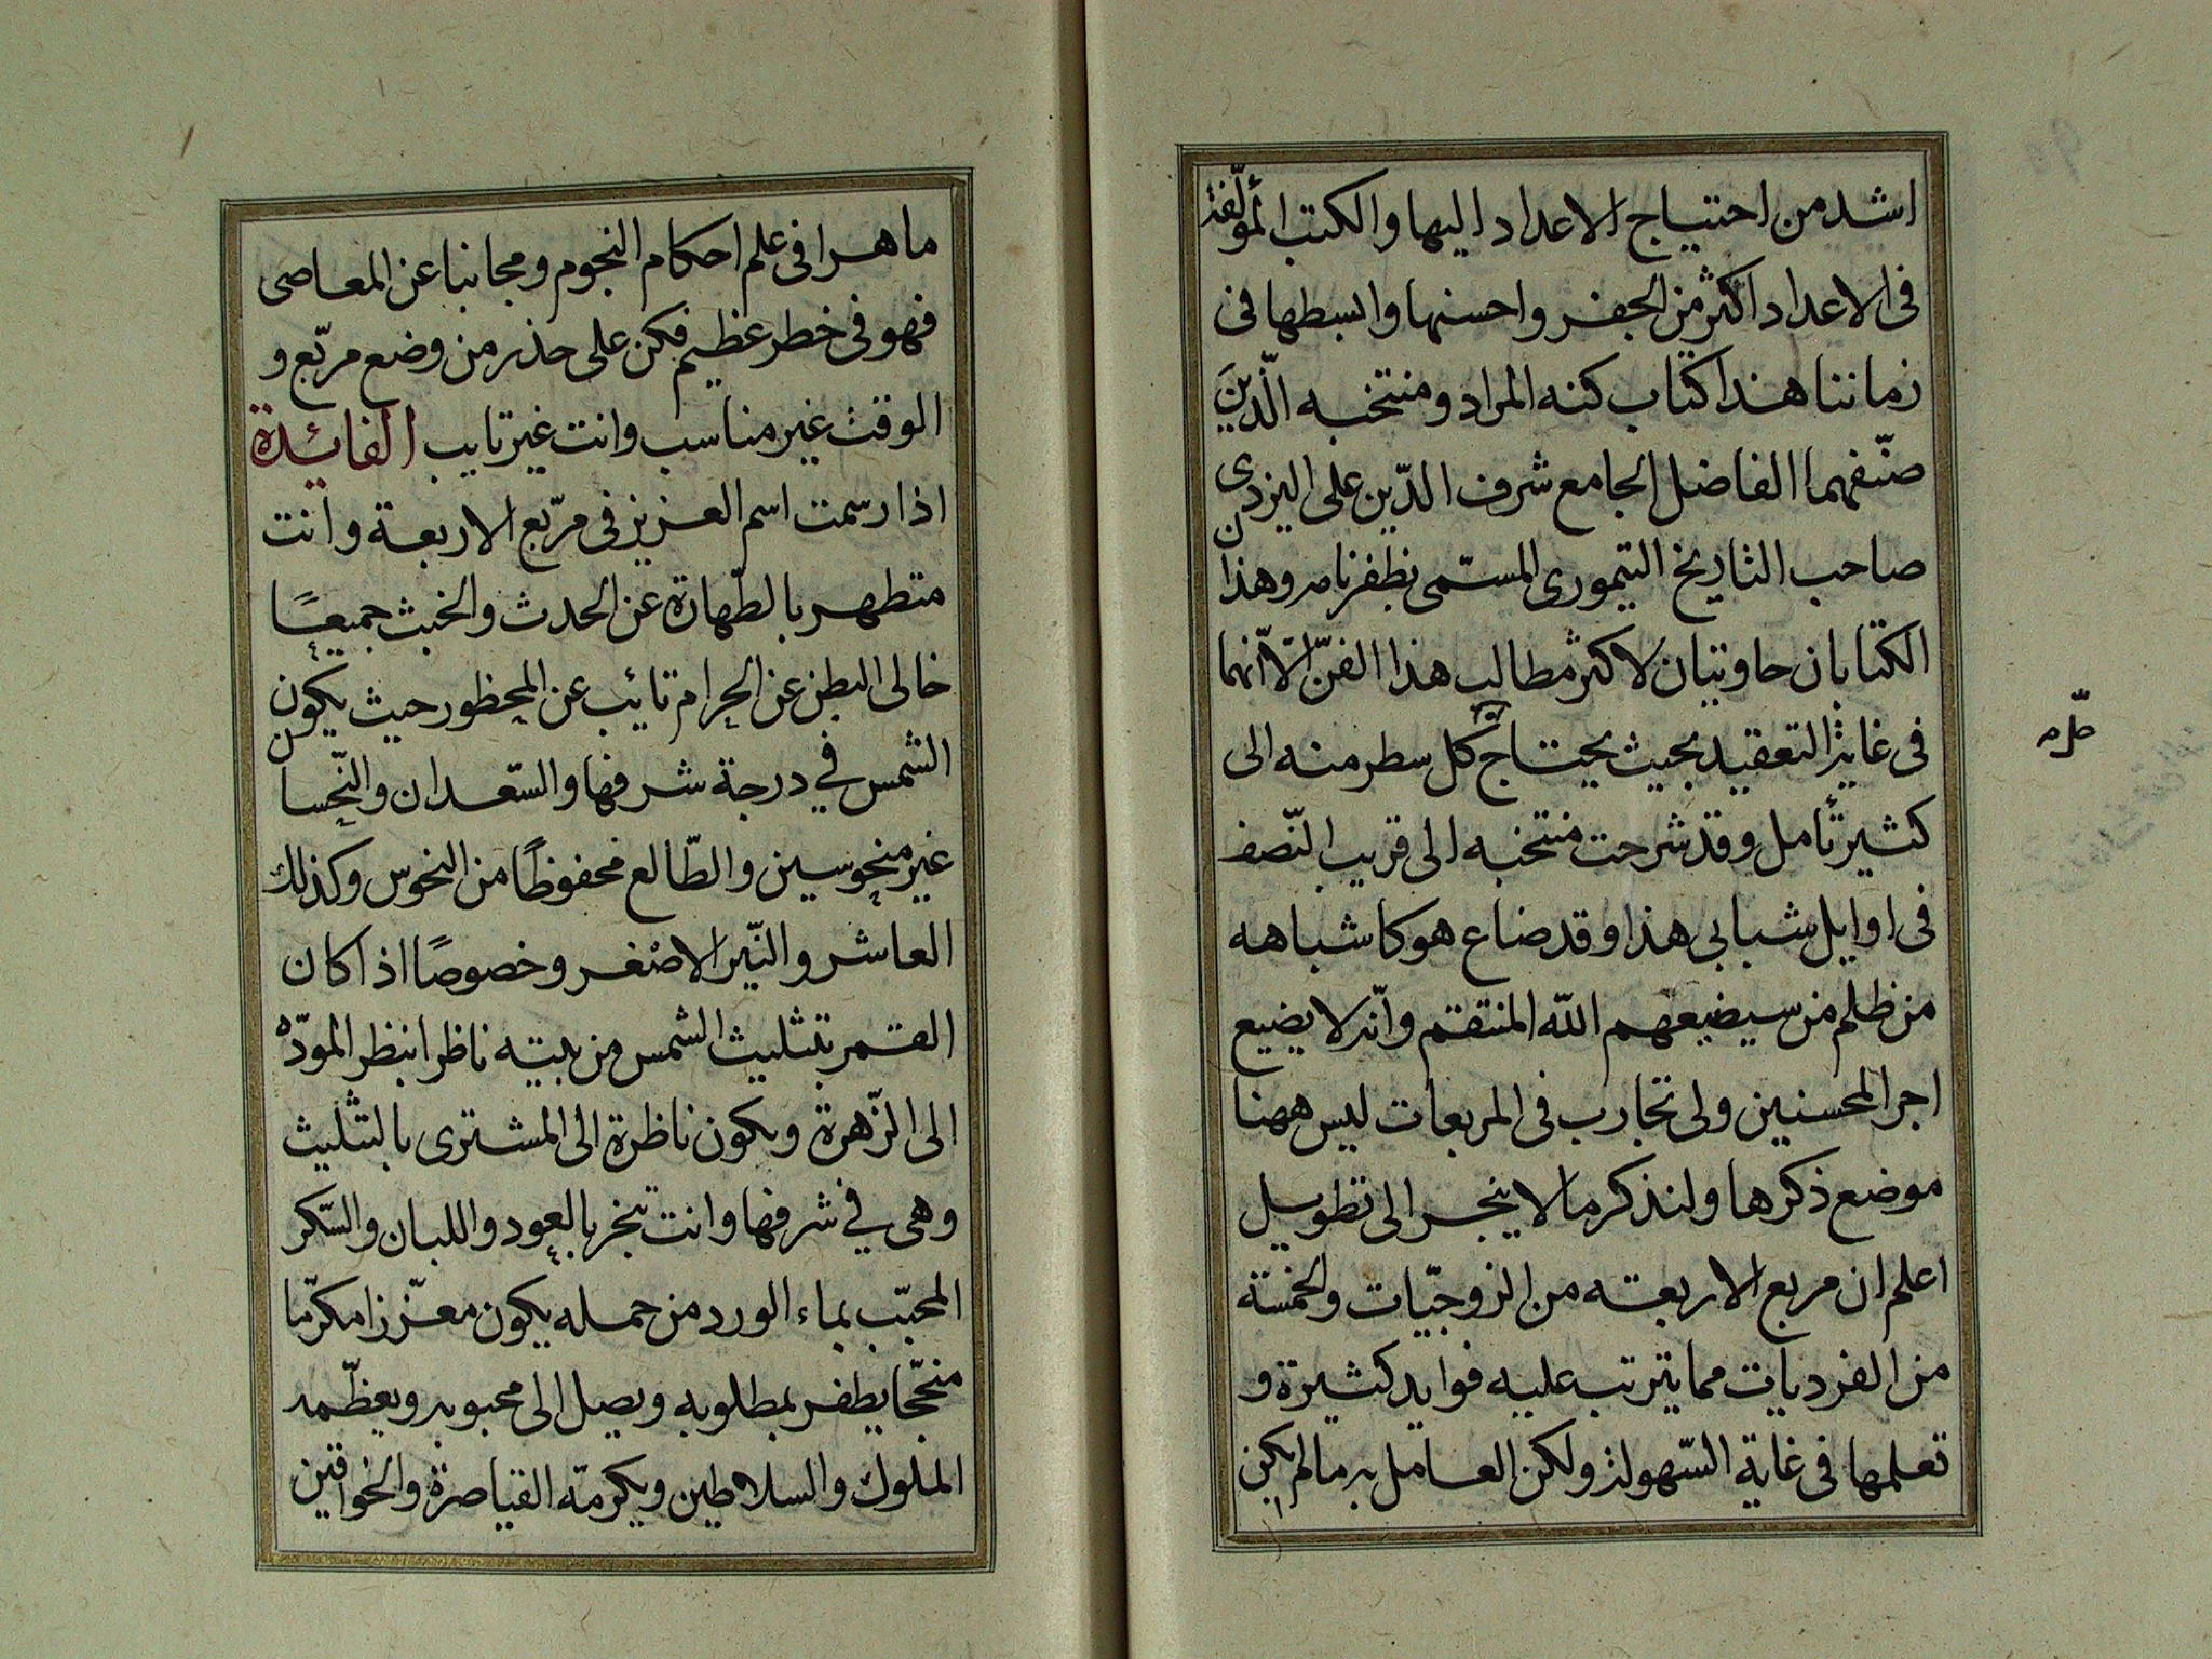 اشد من احتياج الاعداد اليها والكتب المؤلّفة
فى الاعداد اكثر من الجفر واحسنها وابسطها فى
زماننا هذا كتاب كنه المراد ومنتخبه الّذين
صنّفهما الفاضل الجامع شرف الدّين على اليزدى
صاحب التاريخ التيمورى المسمّى بظفرنامه وهذان
الكتابان حاويتان لاكثر مطالب هذا الفنّ الاّ انّهما
فى غاية التعقيد بحيث يحتاج كل سطر منه الى
حلّه
كثير تأمل وقد شرحت منتخبه الى قريب النّصف
فى اوايل شبابى هذا وقد ضاع هو كاشباهه
من ظلم من سيضيعهم الله المنتقم وانّه لا يضيع
اجر المحسنين ولى تجارب فى المربعات ليس ههنا
موضع ذكرها ولنذكر ما لا ينجر الى تطويل
اعلم ان مربع الاربعة من الزوجيّات والخمسة
من الفرديات مما يترتب عليه فوايد كثيرة و
تعلمها فى غاية السّهولة ولكن العامل به ما لم يكن
ماهرا فى علم احكام النجوم ومجانبا عن المعاصى
فهو فى خطر عظيم فكن على حذر من وضع مربّع و
الوقت غير مناسب وانت غير تايب الفائدة
اذا رسمت اسم العزيز فى مربّع الاربعة وانت
متطهر بالطّهارة عن الحدث والخبث جميعًا
خالى البطن عن الحرام تائب عن المحظور حيث يكون
الشمس في درجة شرفها والسّعدان والنّحسان
غير منحوسين والطّالع محفوظًا من النحوس وكذلك
العاشر والنّير الاصغر وخصوصًا اذا كان
القمر بتثليث الشمس من بيته ناظرا بنظر المودّة
الى الزّهرة ويكون ناظرة الى المشترى بالتثليث
وهى في شرفها وانت تبخر بالعود واللبان والسّكر
المحبّب بماء الورد من حمله يكون معزّزا مكرّما
منجّحا يظفر بمطلوبه ويصل الى محبوبه ويعظّمه
الملوك والسلاطين ويكرمه القياصرة والخواقين